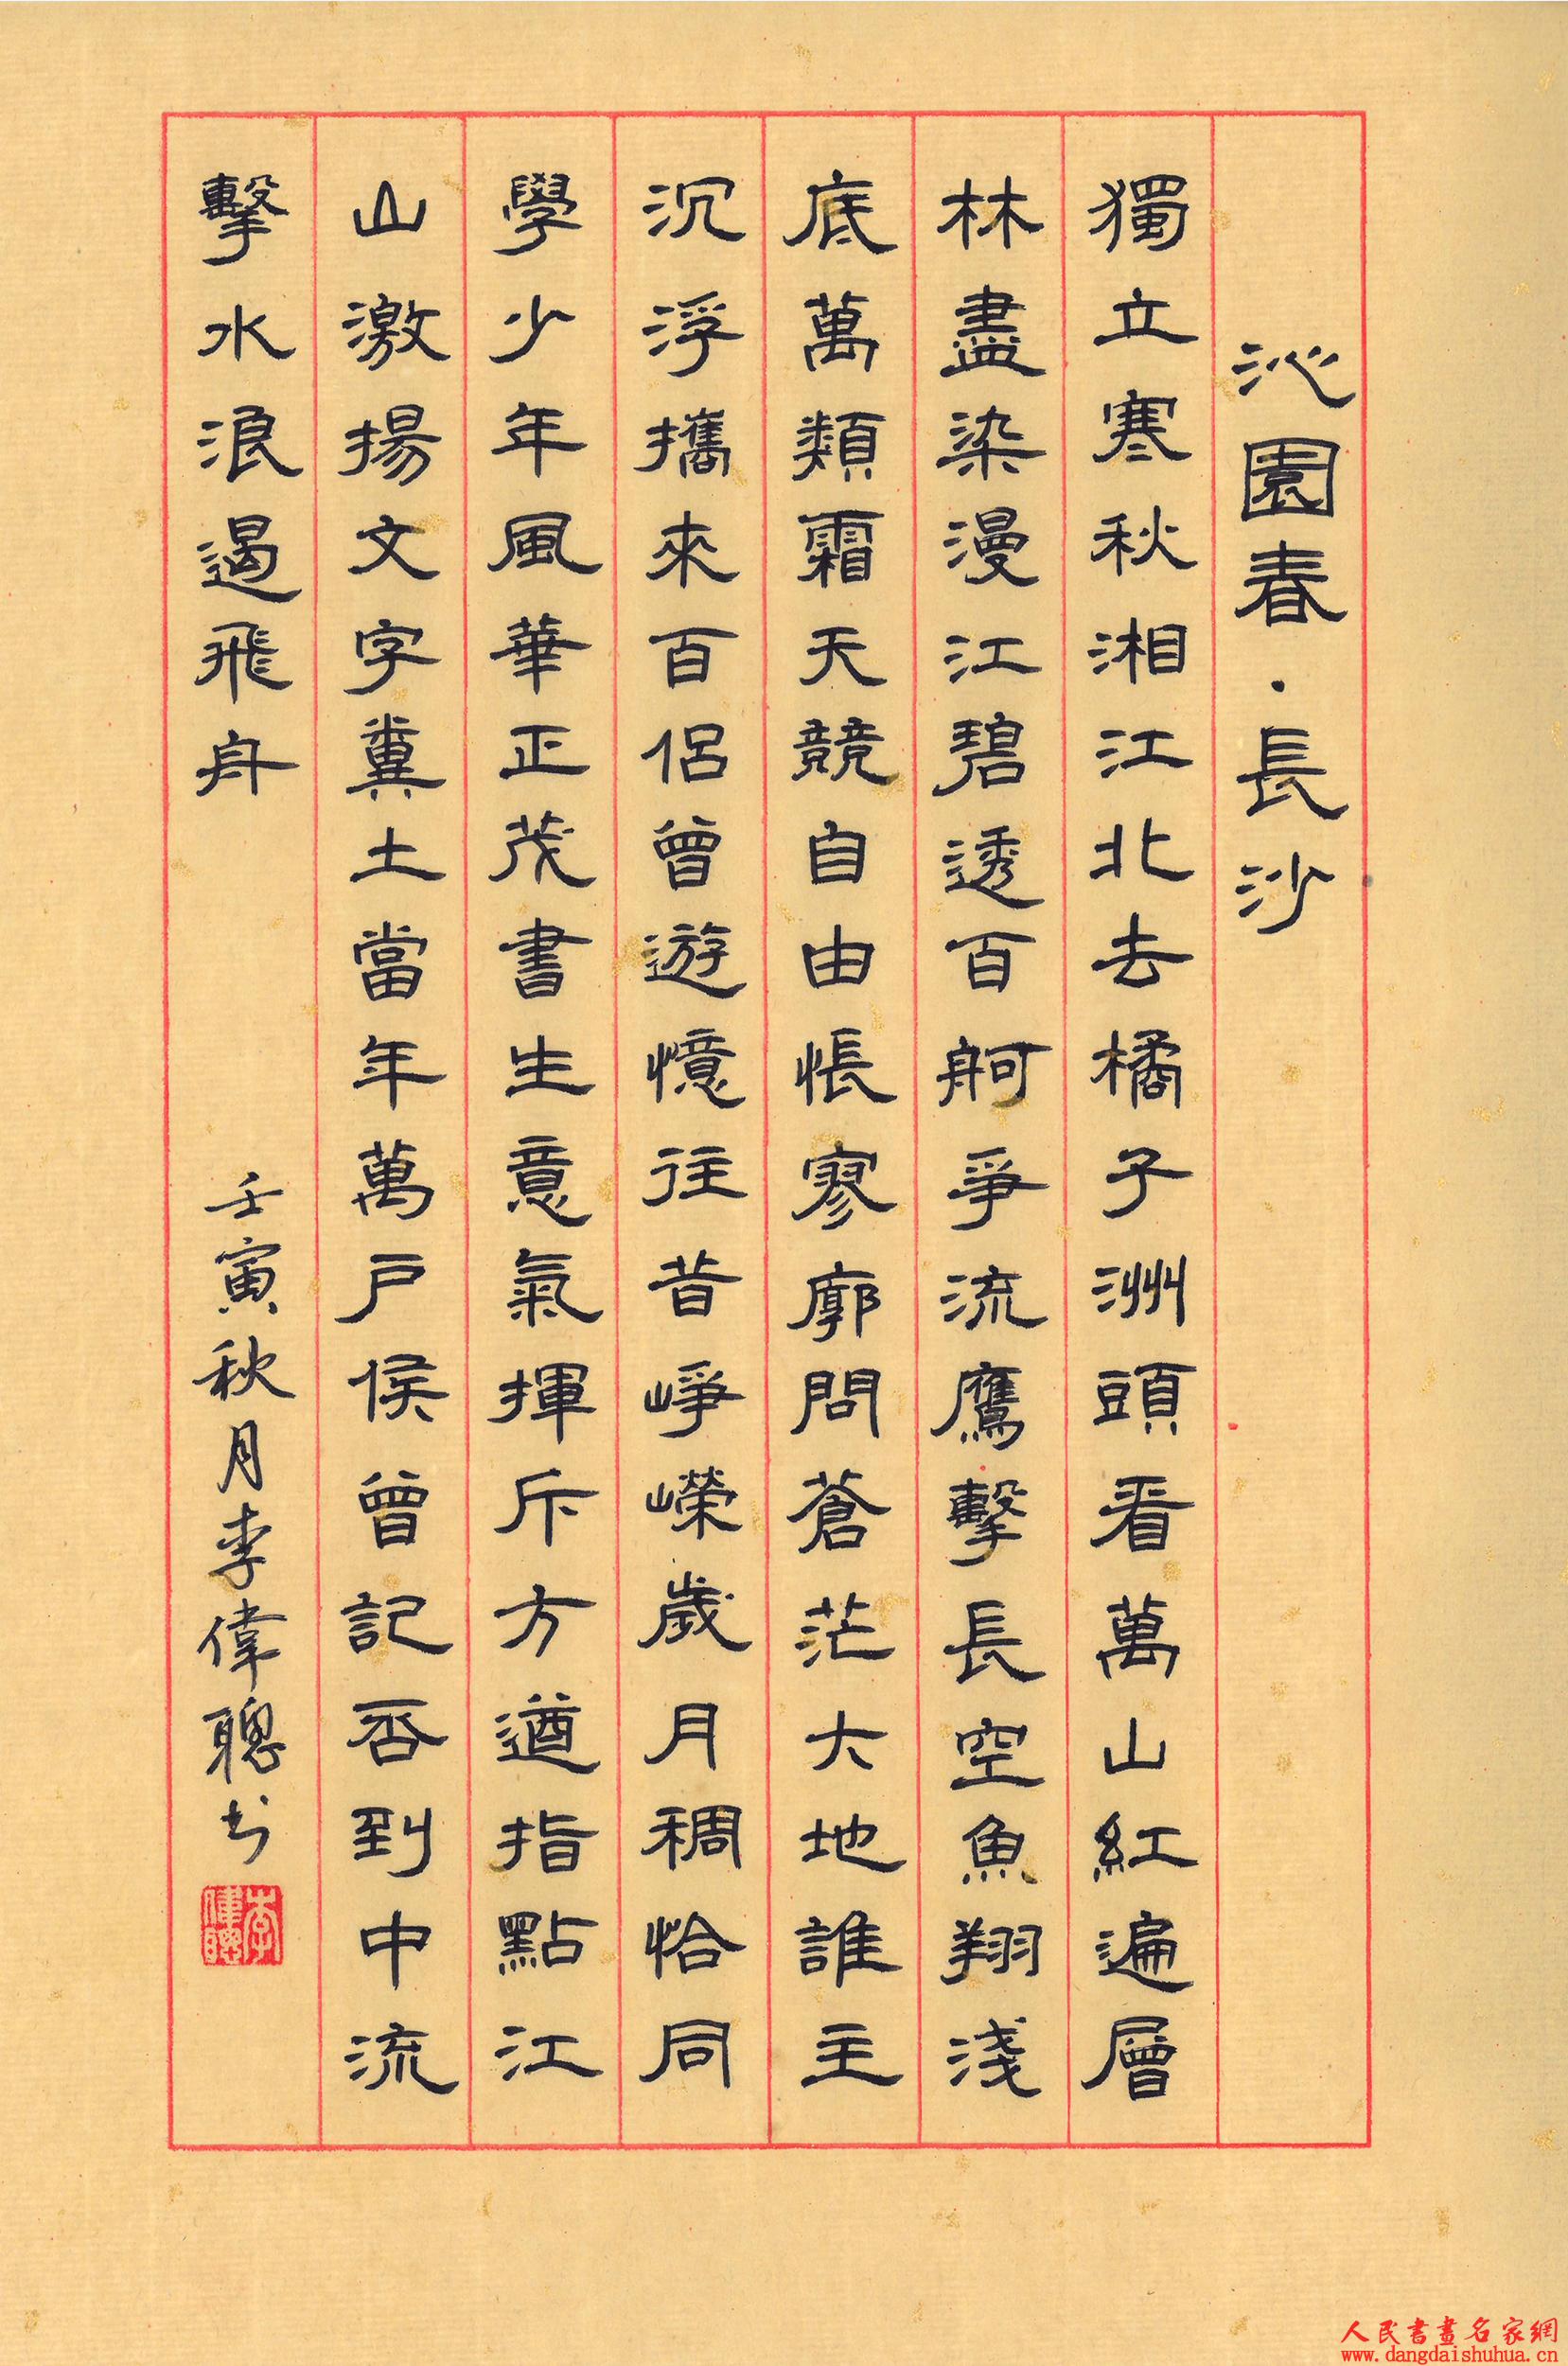 沁園春·長沙
獨立寒秋湘江北去橘子洲頭看萬山紅遍層
林盡染漫江碧透百舸爭流鷹擊長空魚翔淺
底萬類霜天競自由悵寥廓問蒼茫大地誰主
沉浮攜來百侶曾遊憶往昔崢嶸歲月稠恰同
學少年風華正茂書生意氣揮斥方遒指點江
山激揚文字糞土當年萬戶侯曾記否到中流
擊水浪遏飛舟
壬寅秋月李偉聰书
李偉聰
人民書畫名家網
www.dangdaishuhua.cn